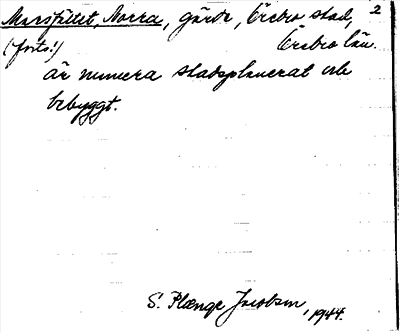 Marsfältet, Norra, gärde, Örebro stad, 2
(forts.) Örebro län.
är numera stadsplanerat och
bebyggt.
S. Plænge Jacobson, 1944.